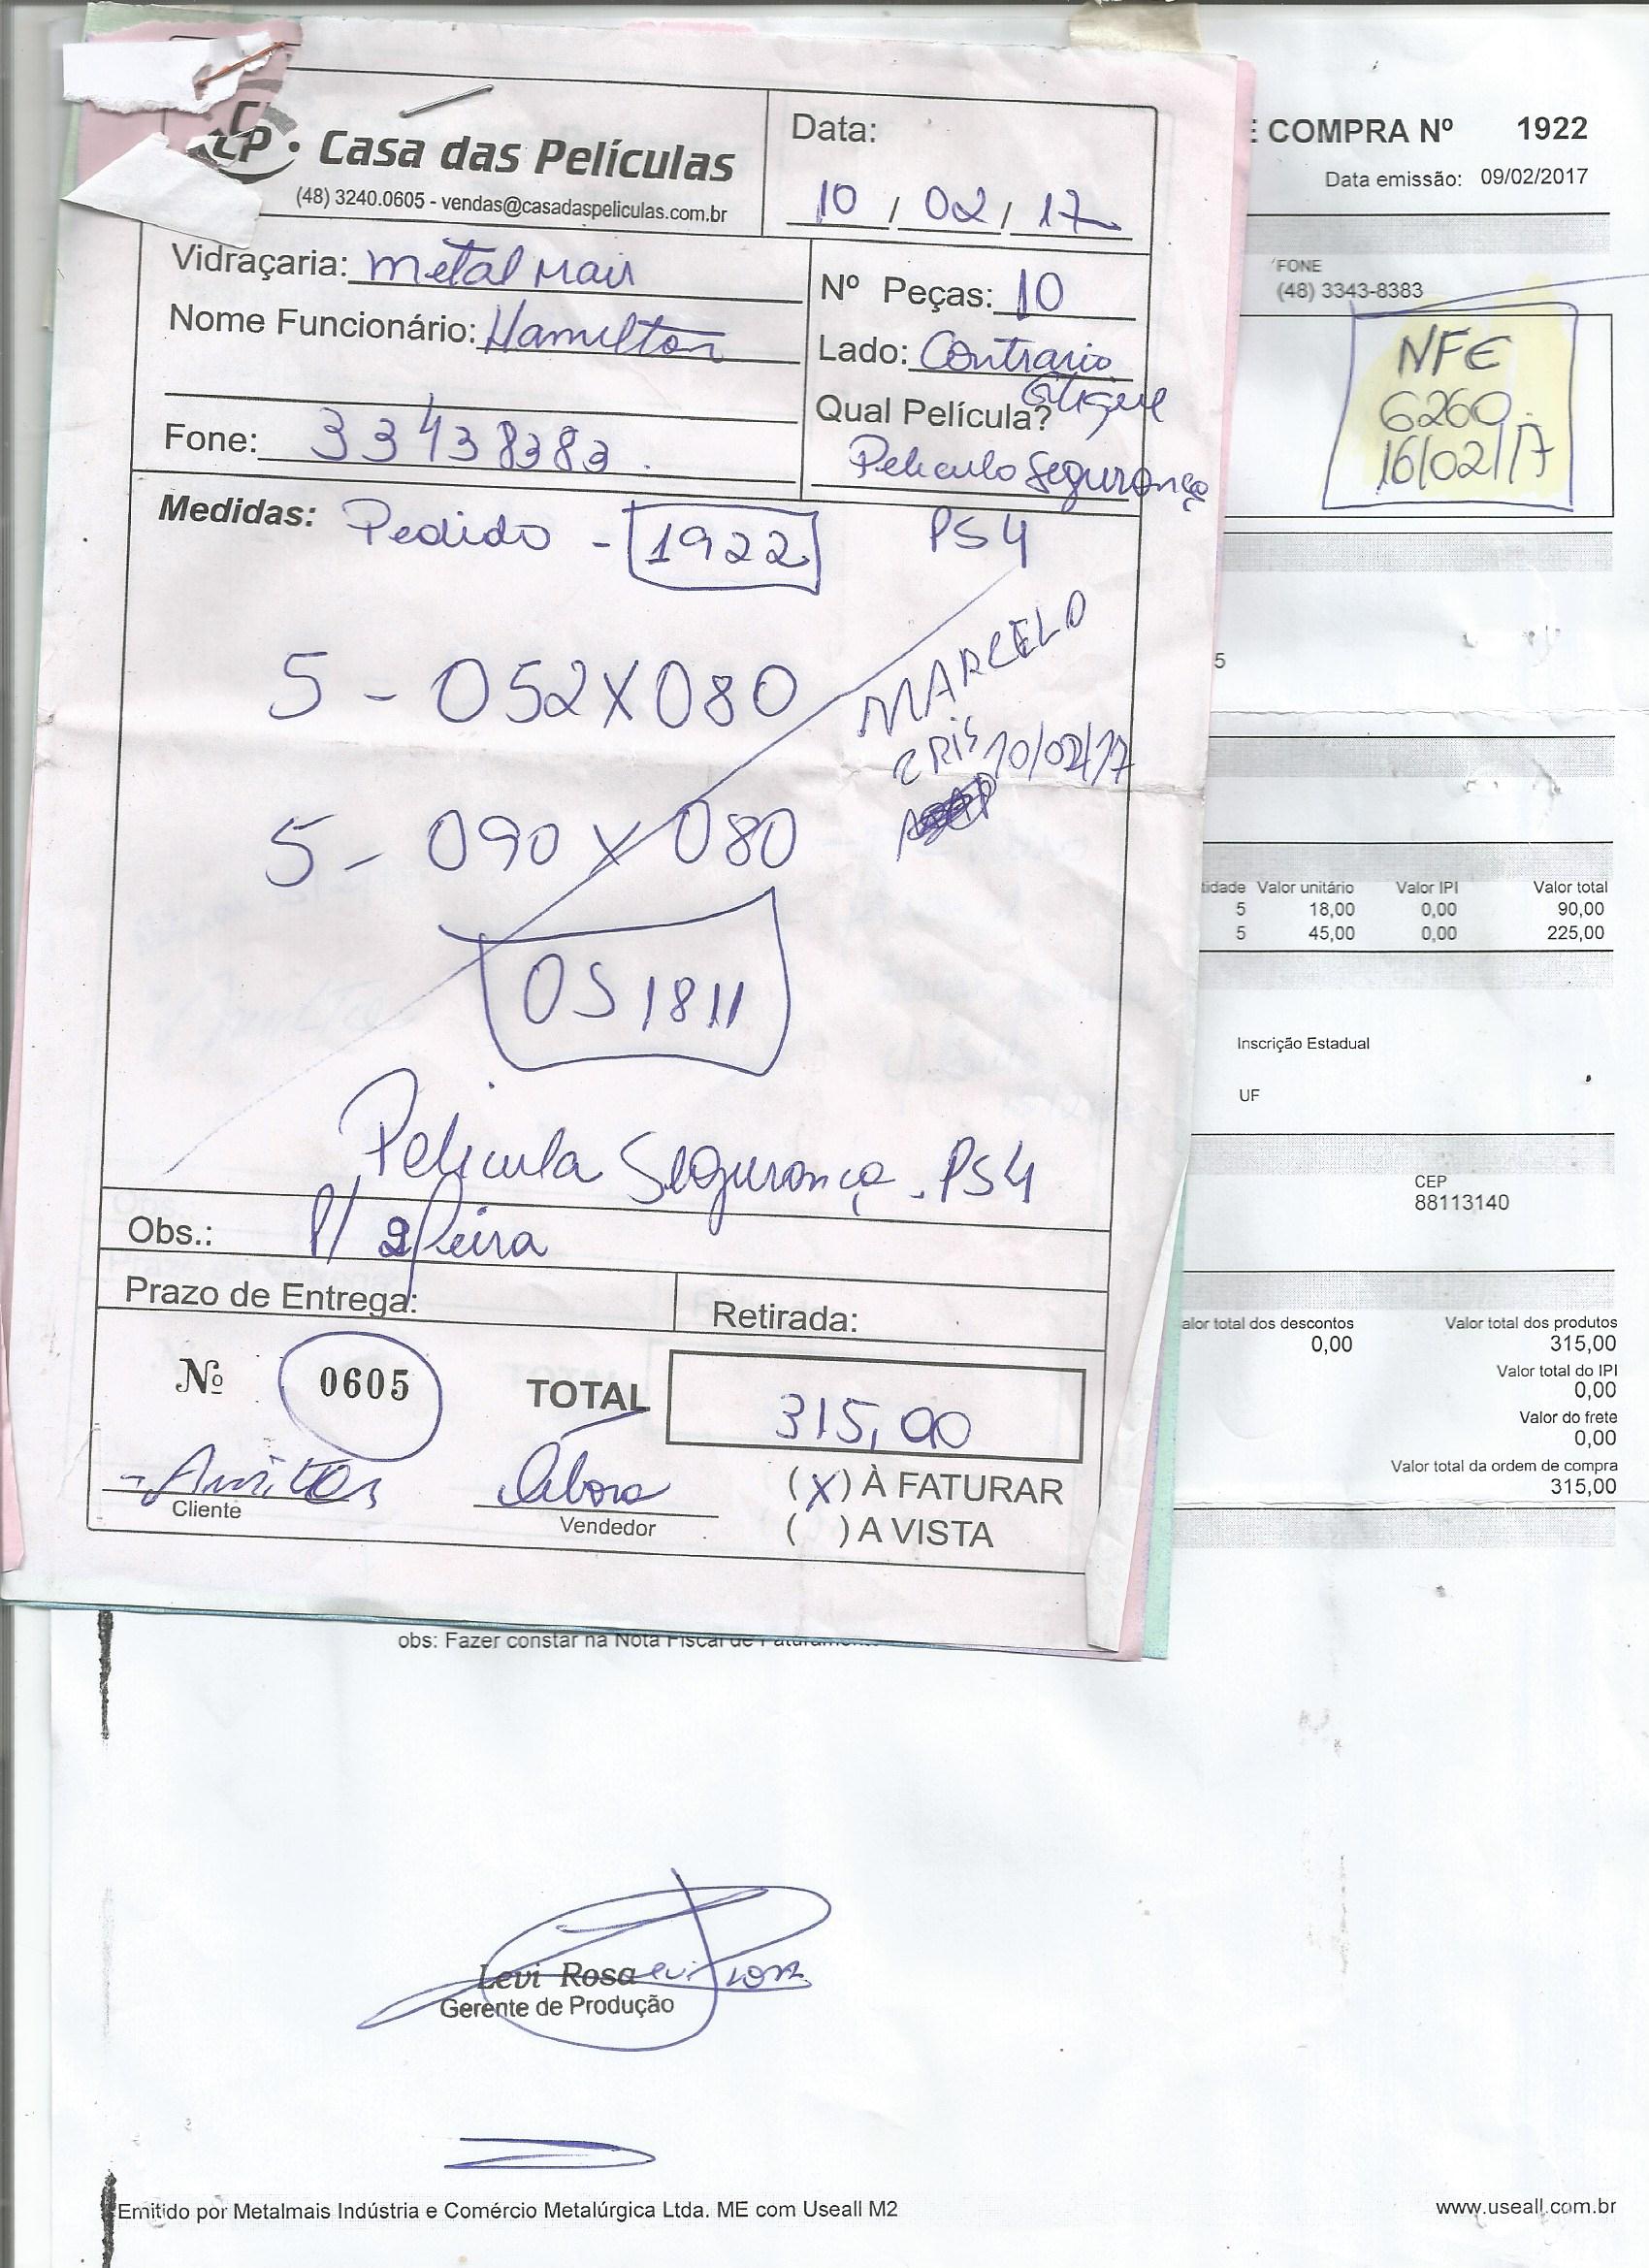 CP • Casa das Películas
(48) 3240.0605 - vendas@casadaspeliculas.com.br
Data:
10 / 02 / 17
Vidraçaria: Metal Mais
Nome Funcionário: Hamilton
Fone: 33438383.
Nº Peças: 10
Lado: Contrario
Qual Película?
Pelicula Segurança
PS4
Medidas: Pedido - 1922
5 - 052X080
MARCELO
CRIS 10/02/17
5 - 090 x 080
OS 1811
Pelicula Segurança. PS4
Obs.: P/ 2 feira
Prazo de Entrega:
Retirada:
Nº 0605
TOTAL 315,00
Cliente
Débora
Vendedor
(X) À FATURAR
( ) A VISTA
E COMPRA Nº 1922
Data emissão: 09/02/2017
FONE
(48) 3343-8383
NFE
6260
16/02/17
5
tidade Valor unitário Valor IPI Valor total
5 18,00 0,00 90,00
5 45,00 0,00 225,00
Inscrição Estadual
UF
CEP
88113140
alor total dos descontos Valor total dos produtos
0,00 315,00
Valor total do IPI
0,00
Valor do frete
0,00
Valor total da ordem de compra
315,00
obs: Fazer constar na Nota Fiscal de Faturamento
Levi Rosa
Gerente de Produção
Emitido por Metalmais Indústria e Comércio Metalúrgica Ltda. ME com Useall M2
www.useall.com.br